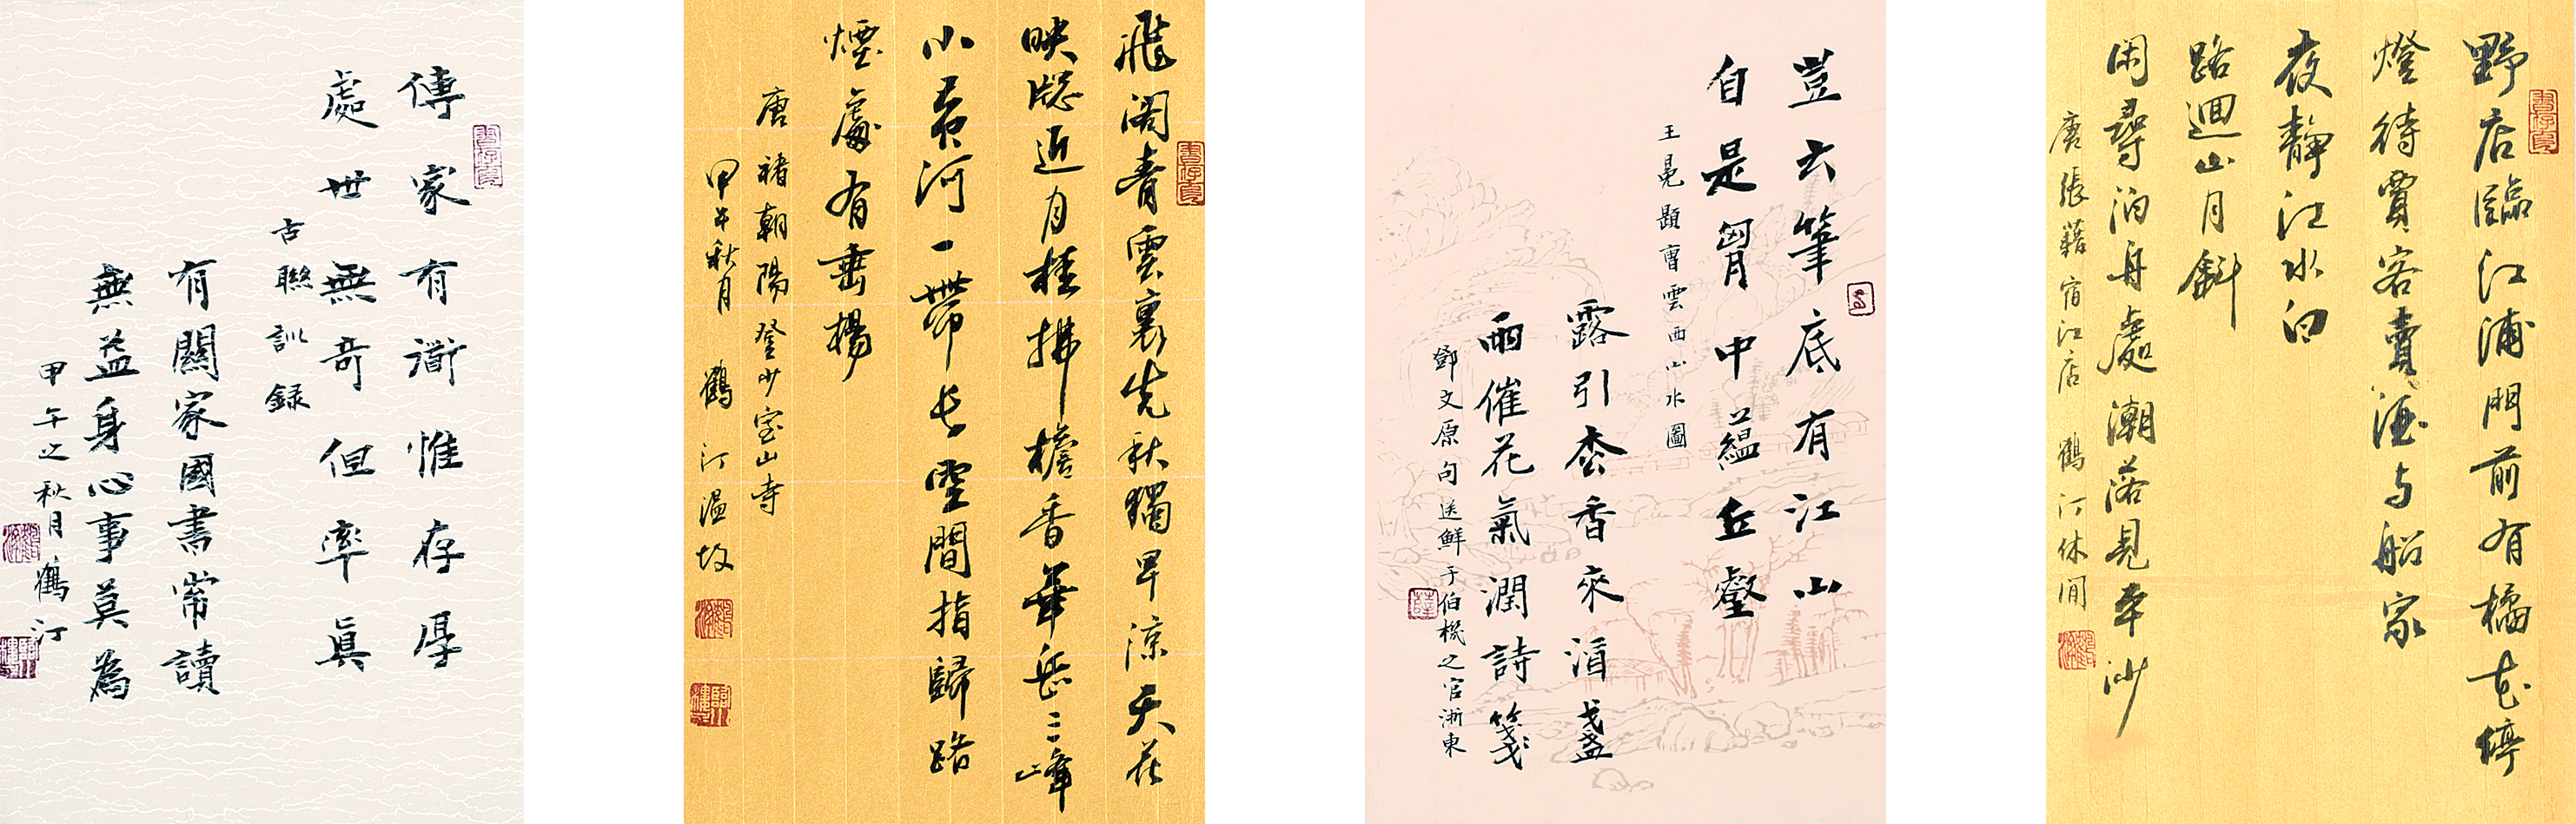 傳家有衟惟存厚
處世無奇但率真
古聯訓録
有關家國書常讀
無益身心事莫為
甲午之秋月鶴汀
飛閣青雲裏先秋獨早涼天花
映牕近月桂拂檐香華岳三峰
小黃河一帶长空間指歸路
煙處有垂楊
唐褚朝陽登少室山寺
甲午秋月 鶴汀温故
豈云筆底有江山
自是胷中蘊丘壑
王冕題曹雲西山水圖
露引枩香來酒盞
雨催花氣潤詩箋
鄧文原句送鮮于伯機之官浙東
野店臨江浦門前有橘花停
燈待賈客賣酒与船家
夜靜江水白
路迴山月斜
閑尋泊舟處潮落見平沙
唐張藉宿江店 鶴汀休閒